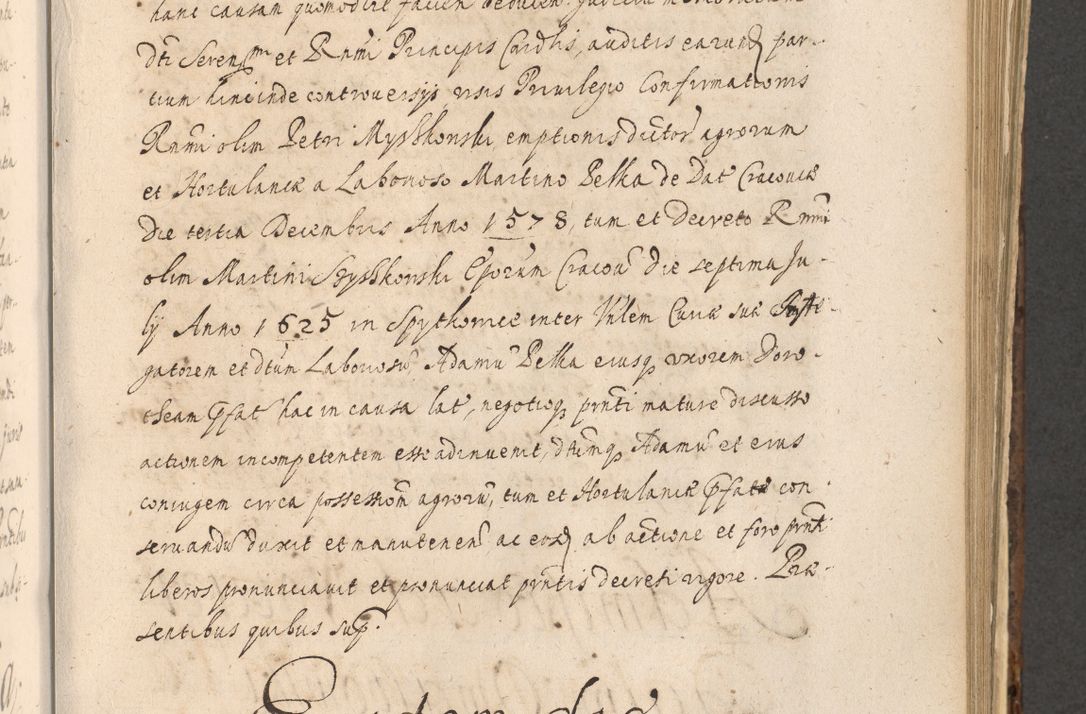 hanc causam quomodocunq facien deducen. Judicium
dti Serenssmi et Rndmi Principis Cardlis, auditis earund par-
tium hincinde controuersijs, visis Priuilegio Confirmationis
Rndmi olim Petri Myszkowski, emptionis dictor agrorum
et Hortulaniæ a Laborioso Martino Pełka de Dat Cracouiæ
Die tertia Decembris Anno 1578, tum et Decreto Rndmi
olim Martini Szyszkowski Eporum Cracou Die septima Ju-
lij Anno 1625 in Spytkowice inter Vnlem Curiæ suæ Insti-
gatorem et dtum Laboriosu Adamu Pełka eiusq vxorem Doro-
theam pfat hac in causa lat, negotioq prnti mature discusso
actionem incompetentem esse adinuenit, dtumq Adamu et eius
coniugem circa possession agroru, tum et Hortulaniæ pfatæ con-
seruandu duxit et manutenen ac eosd ab actione et foro prnti
liberos pronunciauit et pronunciat prntis decreti vigore. Præ-
sentibus quibus sup.
Eadem die